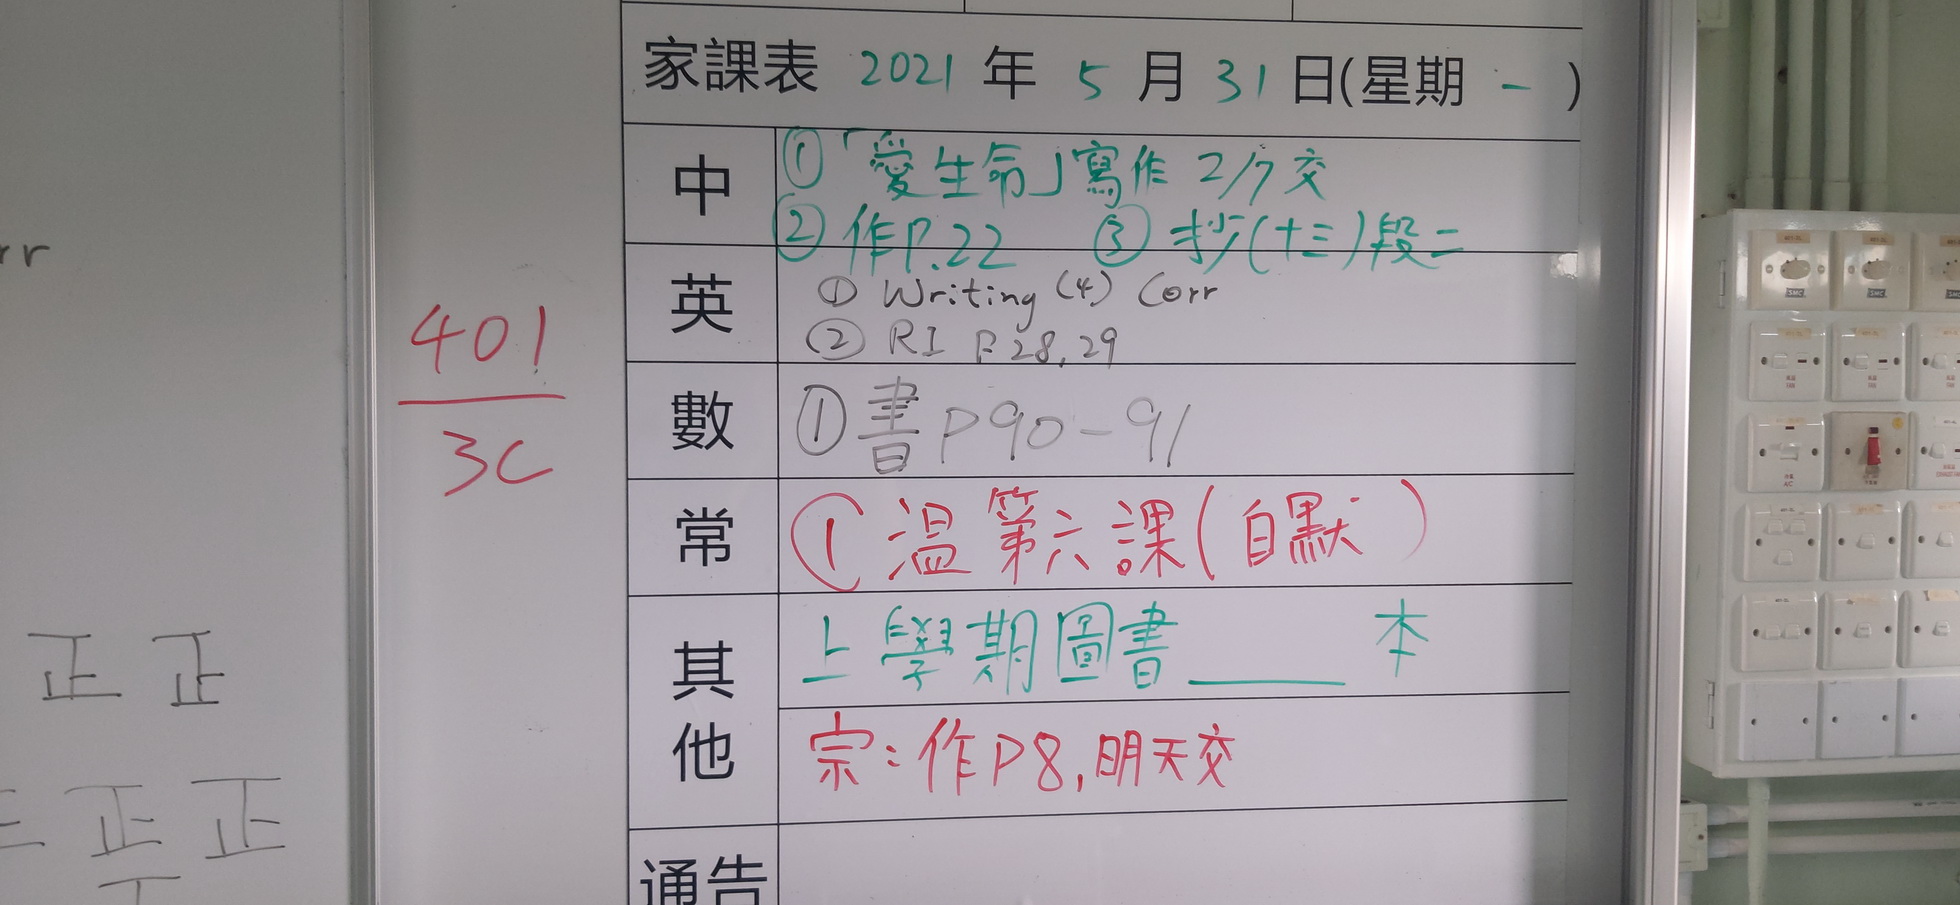 rr
正 正
正 正
401
3C
家課表 2021 年 5 月 31 日(星期 一 )
中
①「愛生命」寫作 2/7 交
② 作P.22 ③ 抄(十三)段二
英
① Writing (4) Corr
② RI P.28,29
數
① 書 P90-91
常
① 温第六課(自默)
其他
上學期圖書____本
宗:作P8,明天交
通告